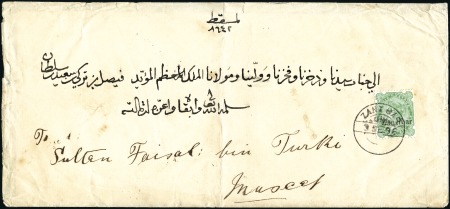 لمسقط
٨٦٤٢
الى جناب سيدنا وذخرنا وفخرنا وولينا ومولانا الملك المعظم المؤيد فيصل بن تركي بن سعيد بن سلطان
سلمه الله وابقاه
To
Sultan Faisal bin Turki
Muscat
ZANZIBAR